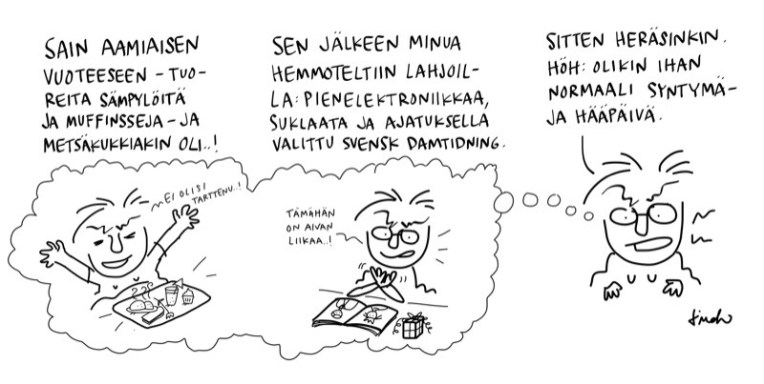 SAIN AAMIAISEN
VUOTEESEEN - TUO-
REITA SÄMPYLÖITÄ
JA MUFFINSSEJA - JA
METSÄKUKKIAKIN OLI..!
EI OLISI
TARTTENU..!
SEN JÄLKEEN MINUA
HEMMOTELTIIN LAHJOIL-
LA: PIENELEKTRONIIKKAA,
SUKLAATA JA AJATUKSELLA
VALITTU SVENSK DAMTIDNING.
TÄMÄHÄN
ON AIVAN
LIIKAA..!
SITTEN HERÄSINKIN.
HÖH: OLIKIN IHAN
NORMAALI SYNTYMÄ-
JA HÄÄPÄIVÄ.